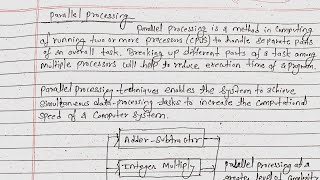 parallel processing
parallel processing is a method in computing
of running two or more processors (CPUs) to handle separate parts
of an overall task. Breaking up different parts of a task among
multiple processors will help to reduce execution time of a program.
parallel processing techniques enables the system to achieve
simultaneous data-processing tasks to increase the computational
speed of a computer system.
Adder-Subtractor
Integer Multiply
parallel processing at a
greater level of